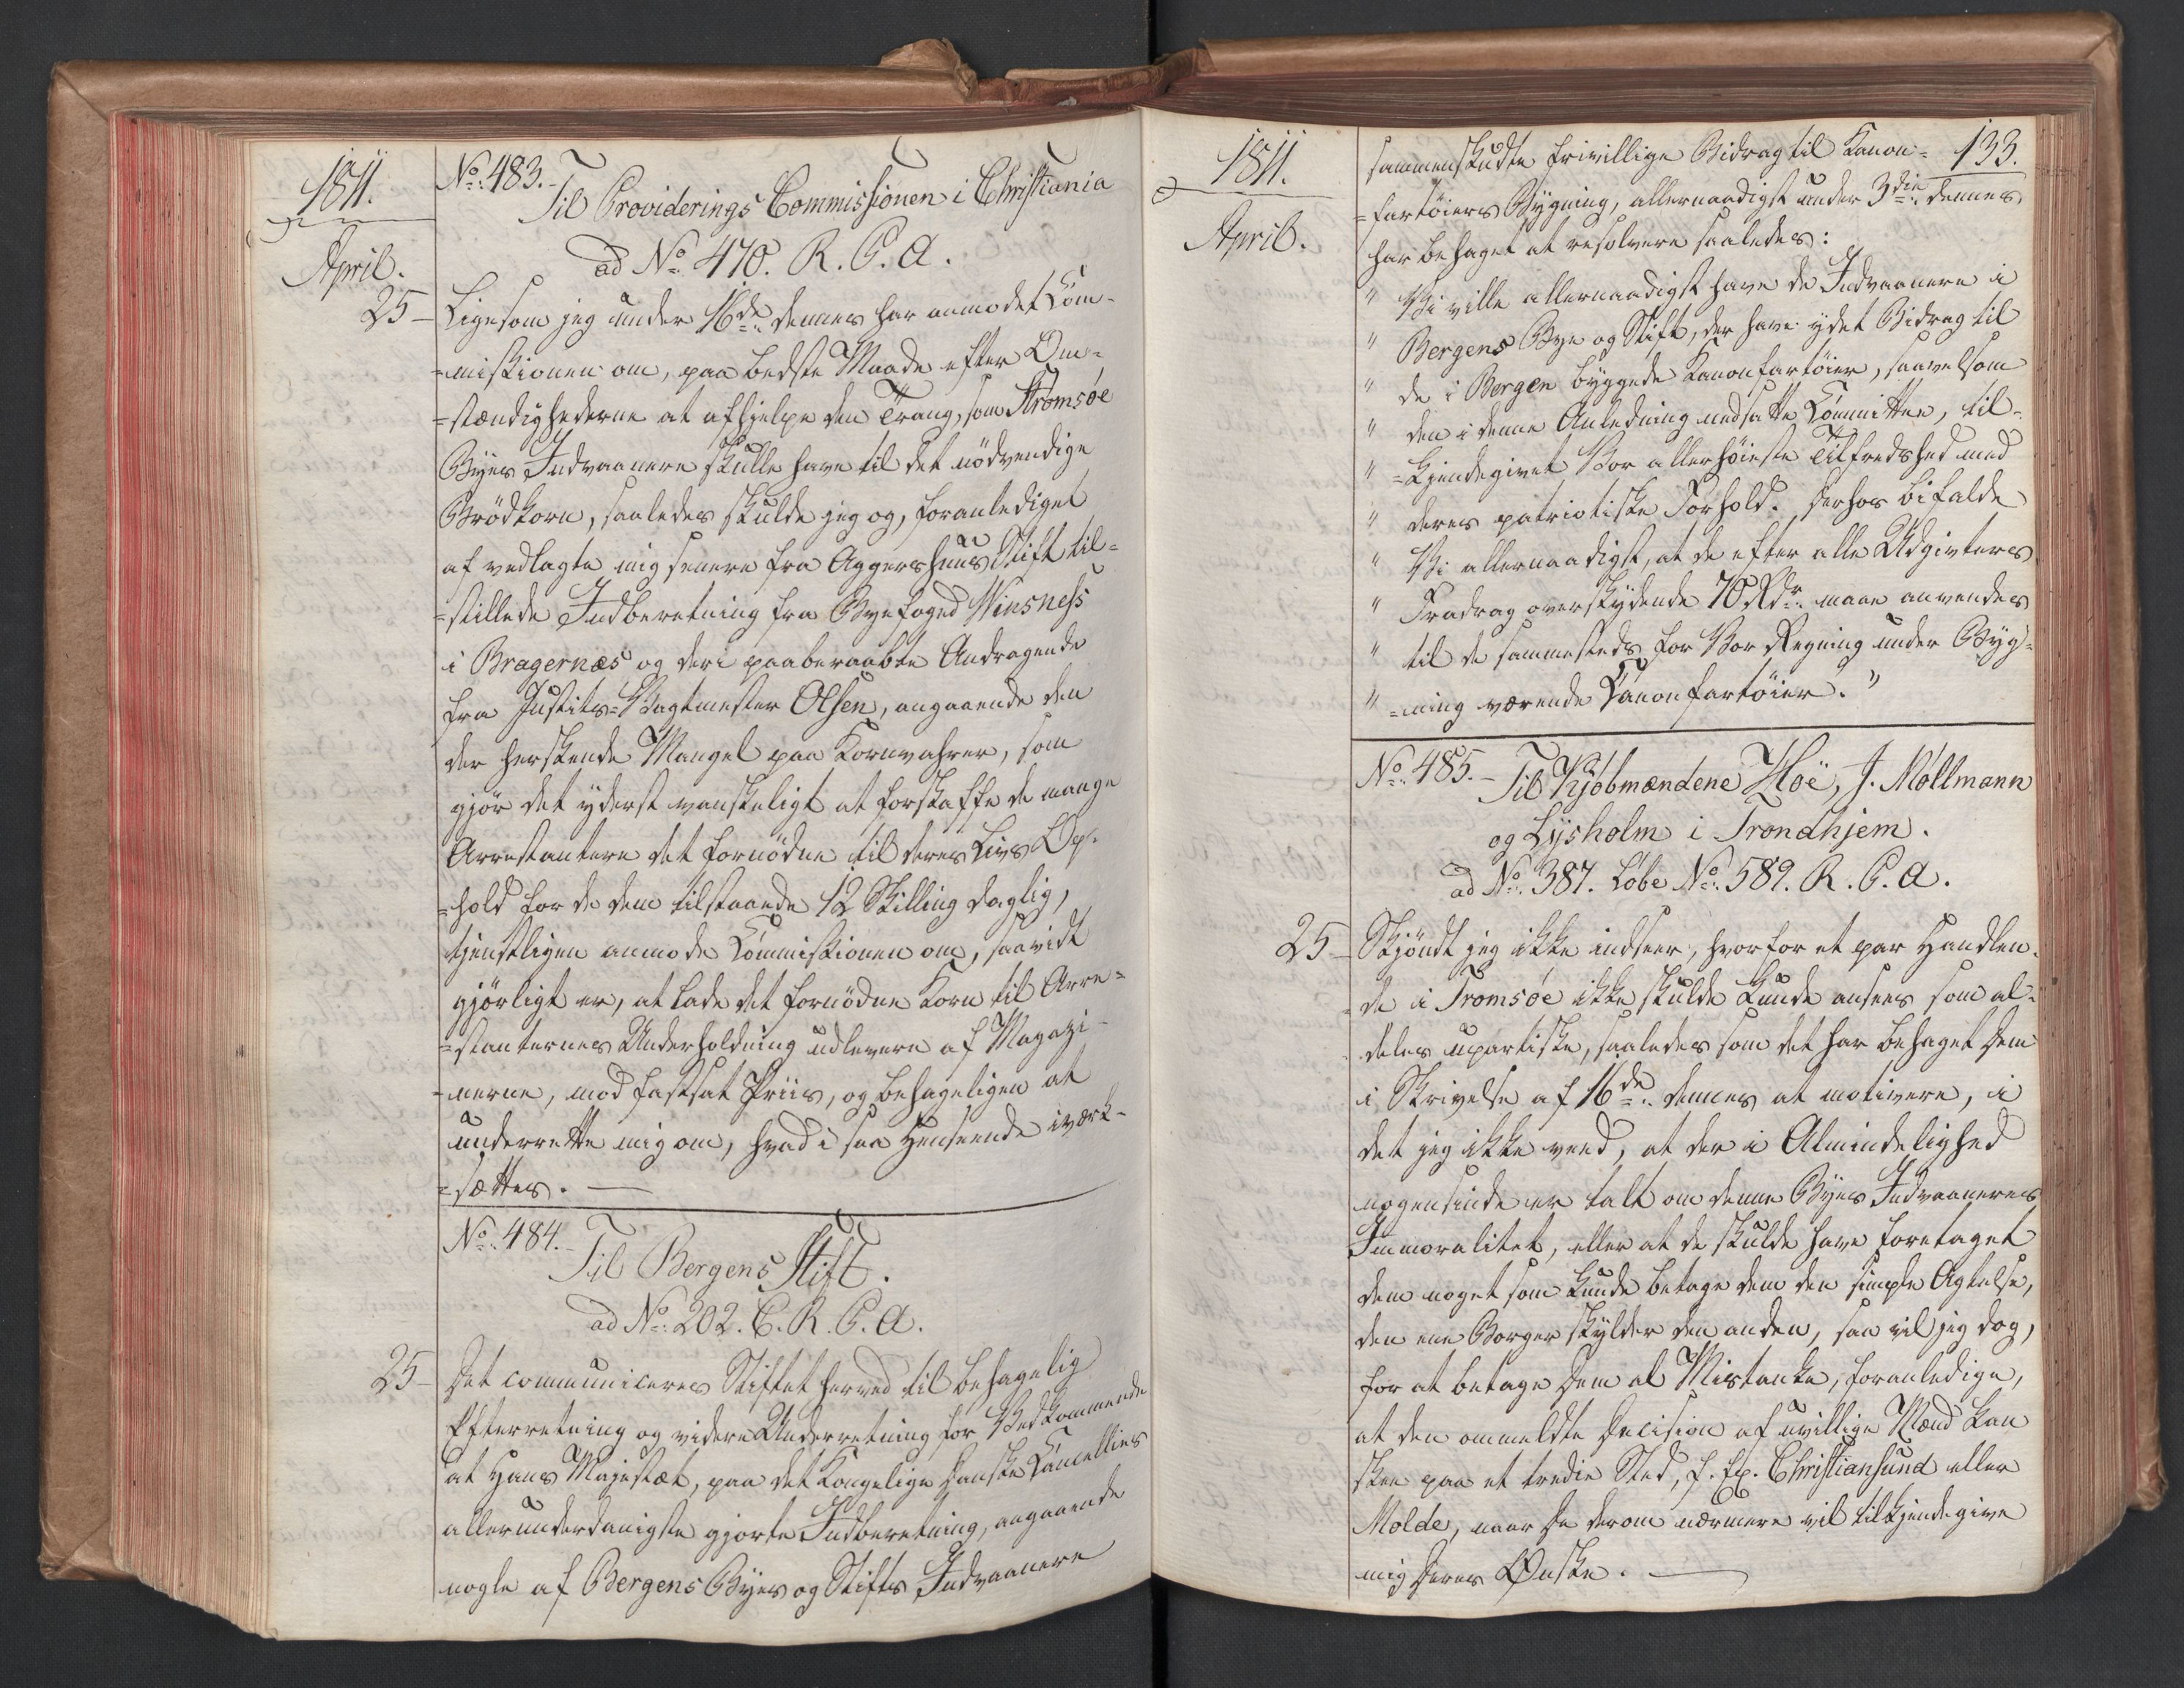 1811.
April.
No: 483.
Til Providerings Commissionen i Christiania
ad No: 470. R. C. A.
25 Ligesom jeg under 16de dennes har anmodet Com-
=missionen om, paa bedste Maade efter Om-
=stændighederne at afhjelpe den Trang, som Strømsøe
Byes Indvaanere skulle have til det nödvendige
Brödkorn, saaledes skulde jeg og, foranlediget
af vedlagte mig senere fra Aggershuus Stift til-
=stillede Indberetning fra Byefoged Winsness
i Bragernæs og deri paaberaabte Andragende
fra Justits-Vagtmester Olsen, angaaende den
der herskende Mangel paa Kornvahrer, som
gjör det yderst vanskeligt at forskaffe de mange
Arrestantere det fornödne til deres Livs Op-
=hold for de dem tilstaaende 12 Skilling daglig,
tjenstligen anmode Commissionen om, saavidt
gjörligt er, at lade det fornödne Korn til Arre-
=stanternes Underholdning udlevere af Magazi-
=nerne, mod fastsat Priis, og behageligen at
underrette mig om, hvad i saa Henseende iværk-
=sættes.
No: 484.
Til Bergens Stift.
ad No: 202. C. R. C. A.
25 Det communiceres Stiftet herved til behagelig
Efterretning og videre Underretning for Vedkommende
at Hans Majestæt, paa det Kongelige danske Cancellies
allerunderdanigste gjorte Indberetning, angaaende
nogle af Bergens Byes og Stifts Indvaanere
1811.
April.
133.
sammenskudte frivillige Bidrag til Kanon-
=fartöiers Bygning, allernaadigst under 3die dennes
har behaget at resolvere saaledes:
" Vi ville allernaadigst have de Indvaanere i
" Bergens Bye og Stift, der have ydet Bidrag til
" de i Bergen byggede Kanonfartöier, saavelsom
" den i denne Anledning nedsatte Committee, til-
" =kjendegivet Vor allerhöieste Tilfredshed med
" deres patriotiske Forhold. Derhos bifalde
" Vi allernaadigst, at de efter alle Udgivters
" Fradrag overskydende 70 Rdr. maae anvendes
" til de sammesteds for Vor Regning under Byg-
" =ning værende Kanonfartöier."
No: 485. Til Kjöbmændene Hoë, J. Möllmann
og Lysholm i Trondhjem.
ad No: 387. Löbe No: 589. R. C. A.
25 Skjöndt jeg ikke indseer, hvorfor et par Handlen-
=de i Tromsöe ikke skulde kunde ansees som al-
deles upartiske, saaledes som det har behaget Dem
i Skrivelse af 16de dennes at motivere, i
det jeg ikke veed, at der i Almindelighed
nogensinde er talt om denne Byes Indvaaneres
Immoralitet, eller at de skulde have foretaget
dem noget som kunde betage dem den simple Agtelse,
den ene Borger skylder den anden, saa vil jeg dog,
for at betage Dem al Mistanke, foranledige,
at den ommeldte Decision af uvillige Mænd kan
skee paa et tredie Sted, f. Ex. Christiansund eller
Molde, naar De derom nærmere vil tilkjendegive
mig Deres Ønske.